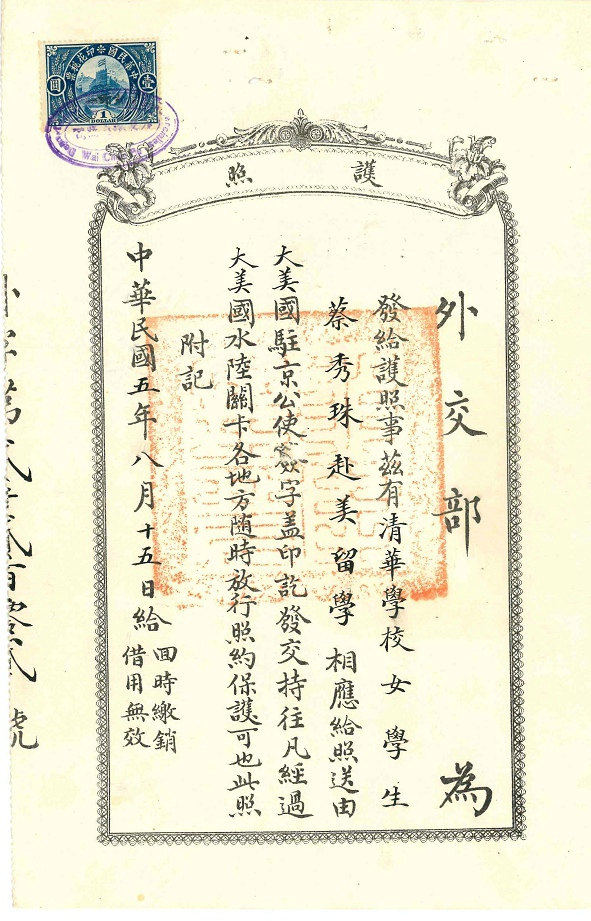 中華民國印花稅票
壹圓
1
DOLLAR
Wai
護照
外交部為
發給護照事茲有清華學校女學生
蔡秀珠赴美留學相應給照送由
大美國駐京公使簽字盖印訖發交持往凡經過
大美國水陸關卡各地方隨時放行照約保護可也此照
附記
中華民國五年八月十五日給
回時繳銷
借用無效
號